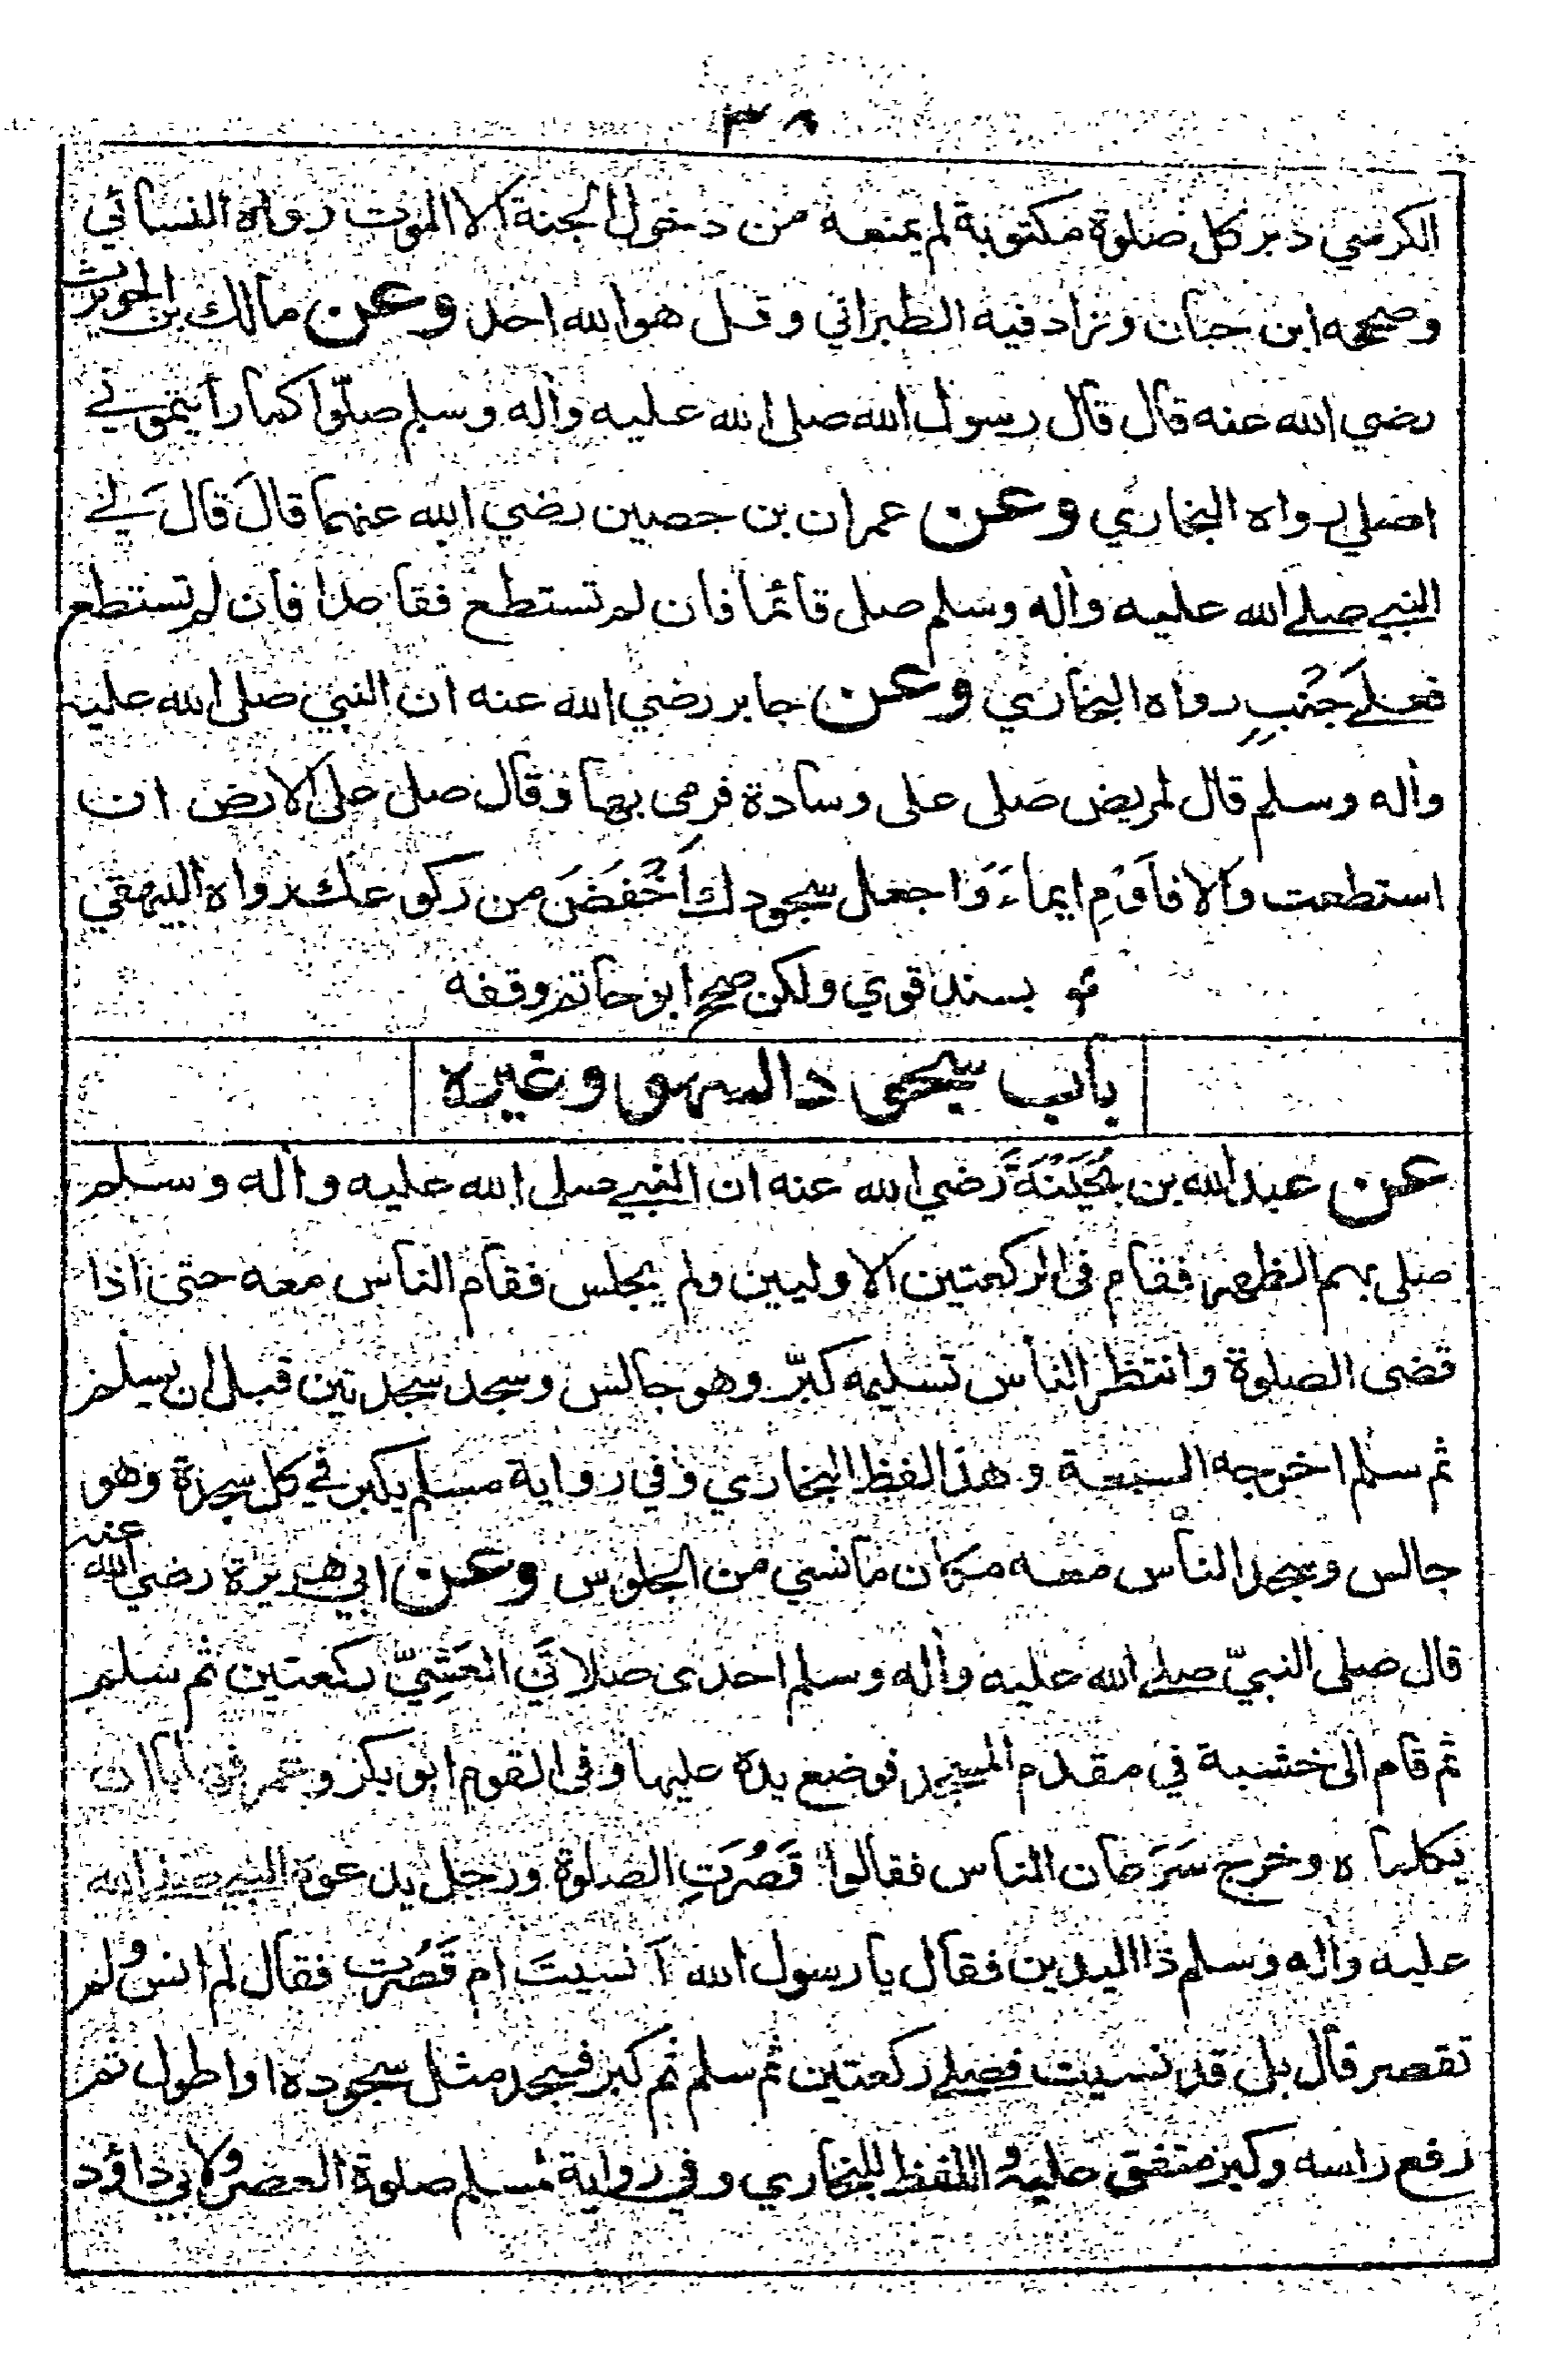 ٣٨
الكرسي دبر كل صلوة مكتوبة لم يمنعه من دخول الجنة الا الموت رواه النسائي
وصححه ابن حبان وزاد فيه الطبراني وقل هو الله احد وعن مالك بن الحويرث
رضي الله عنه قال قال رسول الله صلى الله عليه وأله وسلم صلّوا كما رأيتموني
اصلي رواه البخاري وعن عمران بن حصين رضي الله عنهما قال قال لي
النبي صلى الله عليه وأله وسلم صل قائما فان لم تستطع فقاعدا فان لم تستطع
فعلى جَنْبٍ رواه البخاري وعن جابر رضي الله عنه ان النبي صلى الله عليه
وأله وسلم قال لمريض صلى على وسادة فرمى بها وقال صل على الارض ان
استطعت والا فأَوْمِ ايماءً وَاجعل سجودك أَخْفَضَ من ركوعك رواه البيهقي
بسند قوي ولكن صحح ابو حاتم وقفه
باب سجود السهو وغيره
عن عبد الله بن بُحَيْنَةَ رضي الله عنه ان النبي صلى الله عليه وأله وسلم
صلى بهم الظهر فقام في الركعتين الاوليين ولم يجلس فقام الناس معه حتى اذا
قضى الصلوة وانتظر الناس تسليمه كبّر وهو جالس وسجد سجدتين قبل ان يسلم
ثم سلم اخرجه السبعة وهذا لفظ البخاري وفي رواية مسلم يكبر في كل سجدة وهو
جالس وسجد الناس معه مكان ما نسي من الجلوس وعن ابي هريرة رضي الله عنه
قال صلى النبيّ صلى الله عليه وأله وسلم احدى صلاتَي العَشِيّ ركعتين ثم سلم
ثم قام الى خشبة في مقدم المسجد فوضع يده عليها وفي القوم ابو بكر وعمر فهابا ان
يكلماه وخرج سَرَعان الناس فقالوا قَصُرَتِ الصلوة ورجل يدعوه النبي صلى الله
عليه وأله وسلم ذا اليدين فقال يا رسول الله أنسيتَ ام قَصُرت فقال لم انس ولم
تقصر قال بل قد نسيت فصلى ركعتين ثم سلم ثم كبر فسجد مثل سجوده او اطول ثم
رفع راسه وكبر متفق عليه واللفظ للبخاري وفي رواية لمسلم صلوة العصر ولابي داؤد